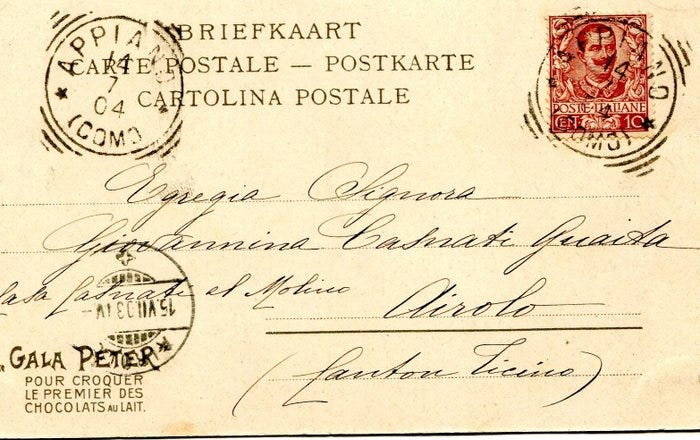 BRIEFKAART
CARTE POSTALE — POSTKARTE
CARTOLINA POSTALE
APPIANO
14
7
04
(COMO)
APPIANO
14
7
04
(COMO)
POSTE·ITALIANE
CENT 10
Egregia Signora
Giovannina Casnati Guaita
Casa Casnati al Molino
Airolo
(Canton Ticino)
15.VII.03.IV-
GALA PETER
POUR CROQUER
LE PREMIER DES
CHOCOLATS AU LAIT.